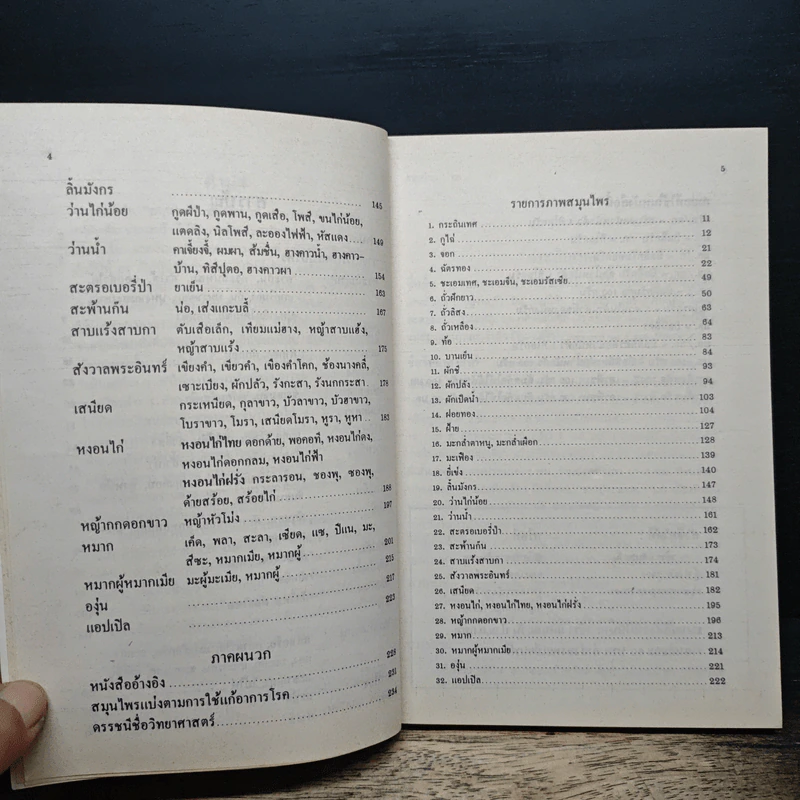 4
ลิ้นมังกร 145
ว่านไก่น้อย กูดผีป่า, กูดพาน, กูดเสือ, โพสี, ขนไก่น้อย,
แตดลิง, นิลโพสี, ละอองไฟฟ้า, หัสแดง 149
ว่านน้ำ คาเจี้ยงจี้, ผมผา, ส้มชื่น, ฮางคาวน้ำ, ฮางคาว-
บ้าน, ทิสีปุตอ, ฮางคาวผา 154
สะตรอเบอรี่ป่า ยาเย็น 163
สะพ้านก๊น น่อ, เส่งแกะบลี้ 167
สาบแร้งสาบกา ตับเสือเล็ก, เทียมแม่ฮาง, หญ้าสาบแฮ้ง,
หญ้าสาบแร้ง 175
สังวาลพระอินทร์ เขียงคำ, เขียวคำ, เขืองคำโคก, ช้องนางคลี่,
เซาะเบียง, ผักปลัว, รังกะสา, รังนกกระสา 178
เสนียด กระเหนียด, กุลาขาว, บัวลาขาว, บัวฮาขาว,
โบราขาว, โมรา, เสนียดโมรา, หูรา, หูหา 183
หงอนไก่ หงอนไก่ไทย ดอกด้าย, พอคอที, หงอนไก่ดง,
หงอนไก่ดอกกลม, หงอนไก่ฟ้า
หงอนไก่ฝรั่ง กระลารอน, ชองพุ, ซองพุ,
ด้ายสร้อย, สร้อยไก่ 188
หญ้ากกดอกขาว หญ้าหัวโม่ง 197
หมาก เค็ด, พลา, สะลา, เซียด, แซ, ปีแน, มะ,
สีซะ, หมากเมีย, หมากผู้ 201
หมากผู้หมากเมีย มะผู้มะเมีย, หมากผู้ 215
องุ่น 217
แอปเปิล 223
ภาคผนวก
หนังสืออ้างอิง 228
สมุนไพรแบ่งตามการใช้แก้อาการโรค 231
ดรรชนีชื่อวิทยาศาสตร์ 234
5
รายการภาพสมุนไพร
1. กระถินเทศ 11
2. กูไฉ่ 12
3. จอก 21
4. ฉัตรทอง 22
5. ชะเอมเทศ, ชะเอมจีน, ชะเอมรัสเซีย 49
6. ถั่วฝักยาว 50
7. ถั่วลิสง 63
8. ถั่วเหลือง 64
9. ท้อ 83
10. บานเย็น 84
11. ผักชี 93
12. ผักปลัง 94
13. ผักเป็ดน้ำ 103
14. ฝอยทอง 104
15. ฝ้าย 127
16. มะกล่ำตาหนู, มะกล่ำเผือก 128
17. มะเฟือง 139
18. ยี่เข่ง 140
19. ลิ้นมังกร 147
20. ว่านไก่น้อย 148
21. ว่านน้ำ 161
22. สะตรอเบอรี่ป่า 162
23. สะพ้านก๊น 173
24. สาบแร้งสาบกา 174
25. สังวาลพระอินทร์ 181
26. เสนียด 182
27. หงอนไก่, หงอนไก่ไทย, หงอนไก่ฝรั่ง 195
28. หญ้ากกดอกขาว 196
29. หมาก 213
30. หมากผู้หมากเมีย 214
31. องุ่น 221
32. แอปเปิล 222